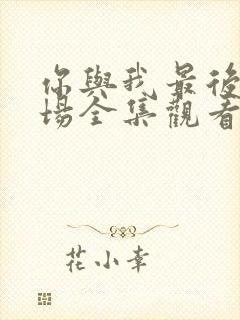 你與我最後
場全集觀看
花小幸